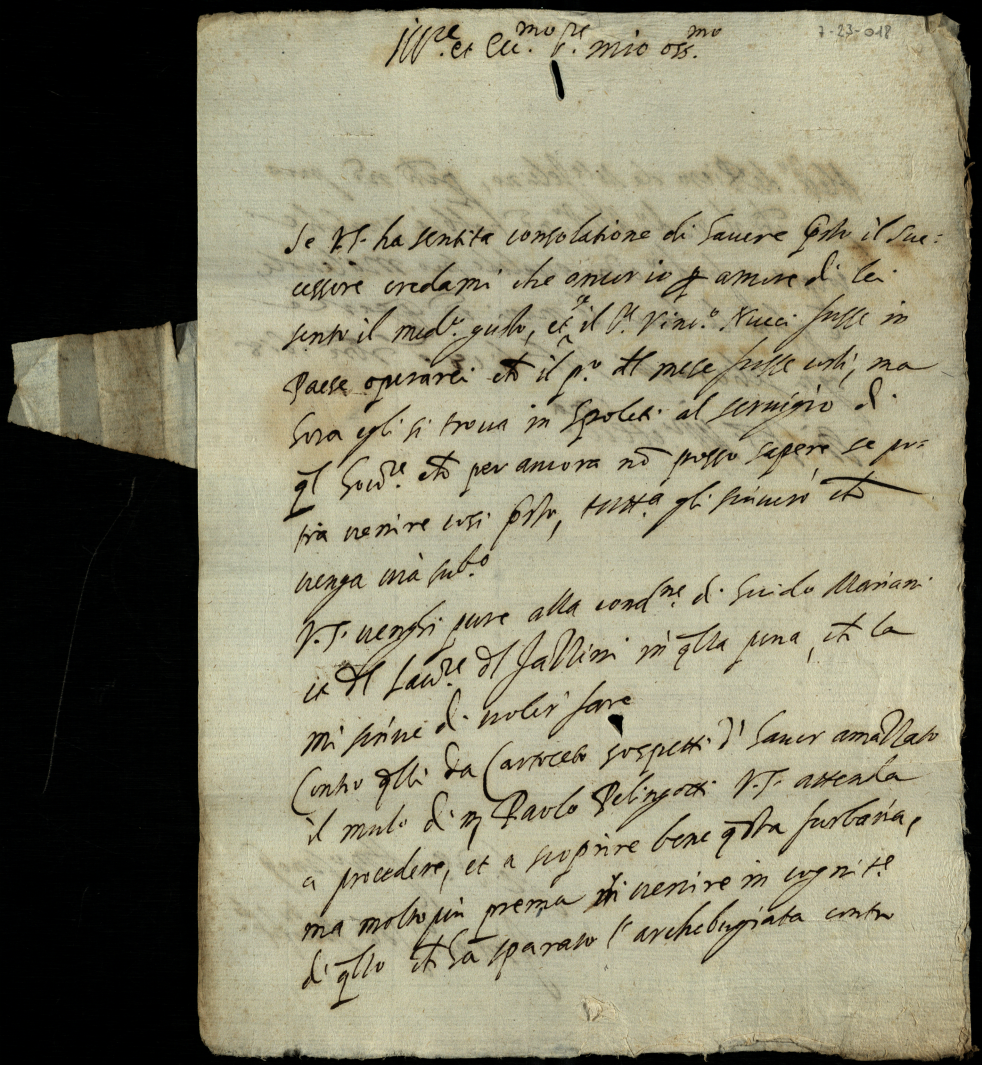 7-23-018
Ill.re et Ecc.mo S.re mio oss.mo
Se V.S. ha sentita consolatione di havere qsto il suc=
cessore credami che ancor io p amore di lei
sento il med.o gusto, et se il S.r Vinc.o Nucci fusse in
Paese operarei ch il p.o dl mese fusse costì, ma
hora egli si trova in Spoleti al servigio di
ql Gov.re ch per ancora nō posso sapere se po=
trà venire così psto, tutt.a gli scriverò ch
venga via sub.o
V.S. venghi pure alla cond.ne di Guido Mariani
et dl Lavo.re dl Jallini in qlla pena, ch la
mi scrive di voler fare
Contro qlli da Cartoceto sospetti d'haver amazzato
il mulo di m Paolo Pelingotti V.S. attenda
a procedere, et a scoprire bene qsta furbaria,
ma molto più prema di venire in cognit.e
di qllo ch hà sparato l'archebugiata contro